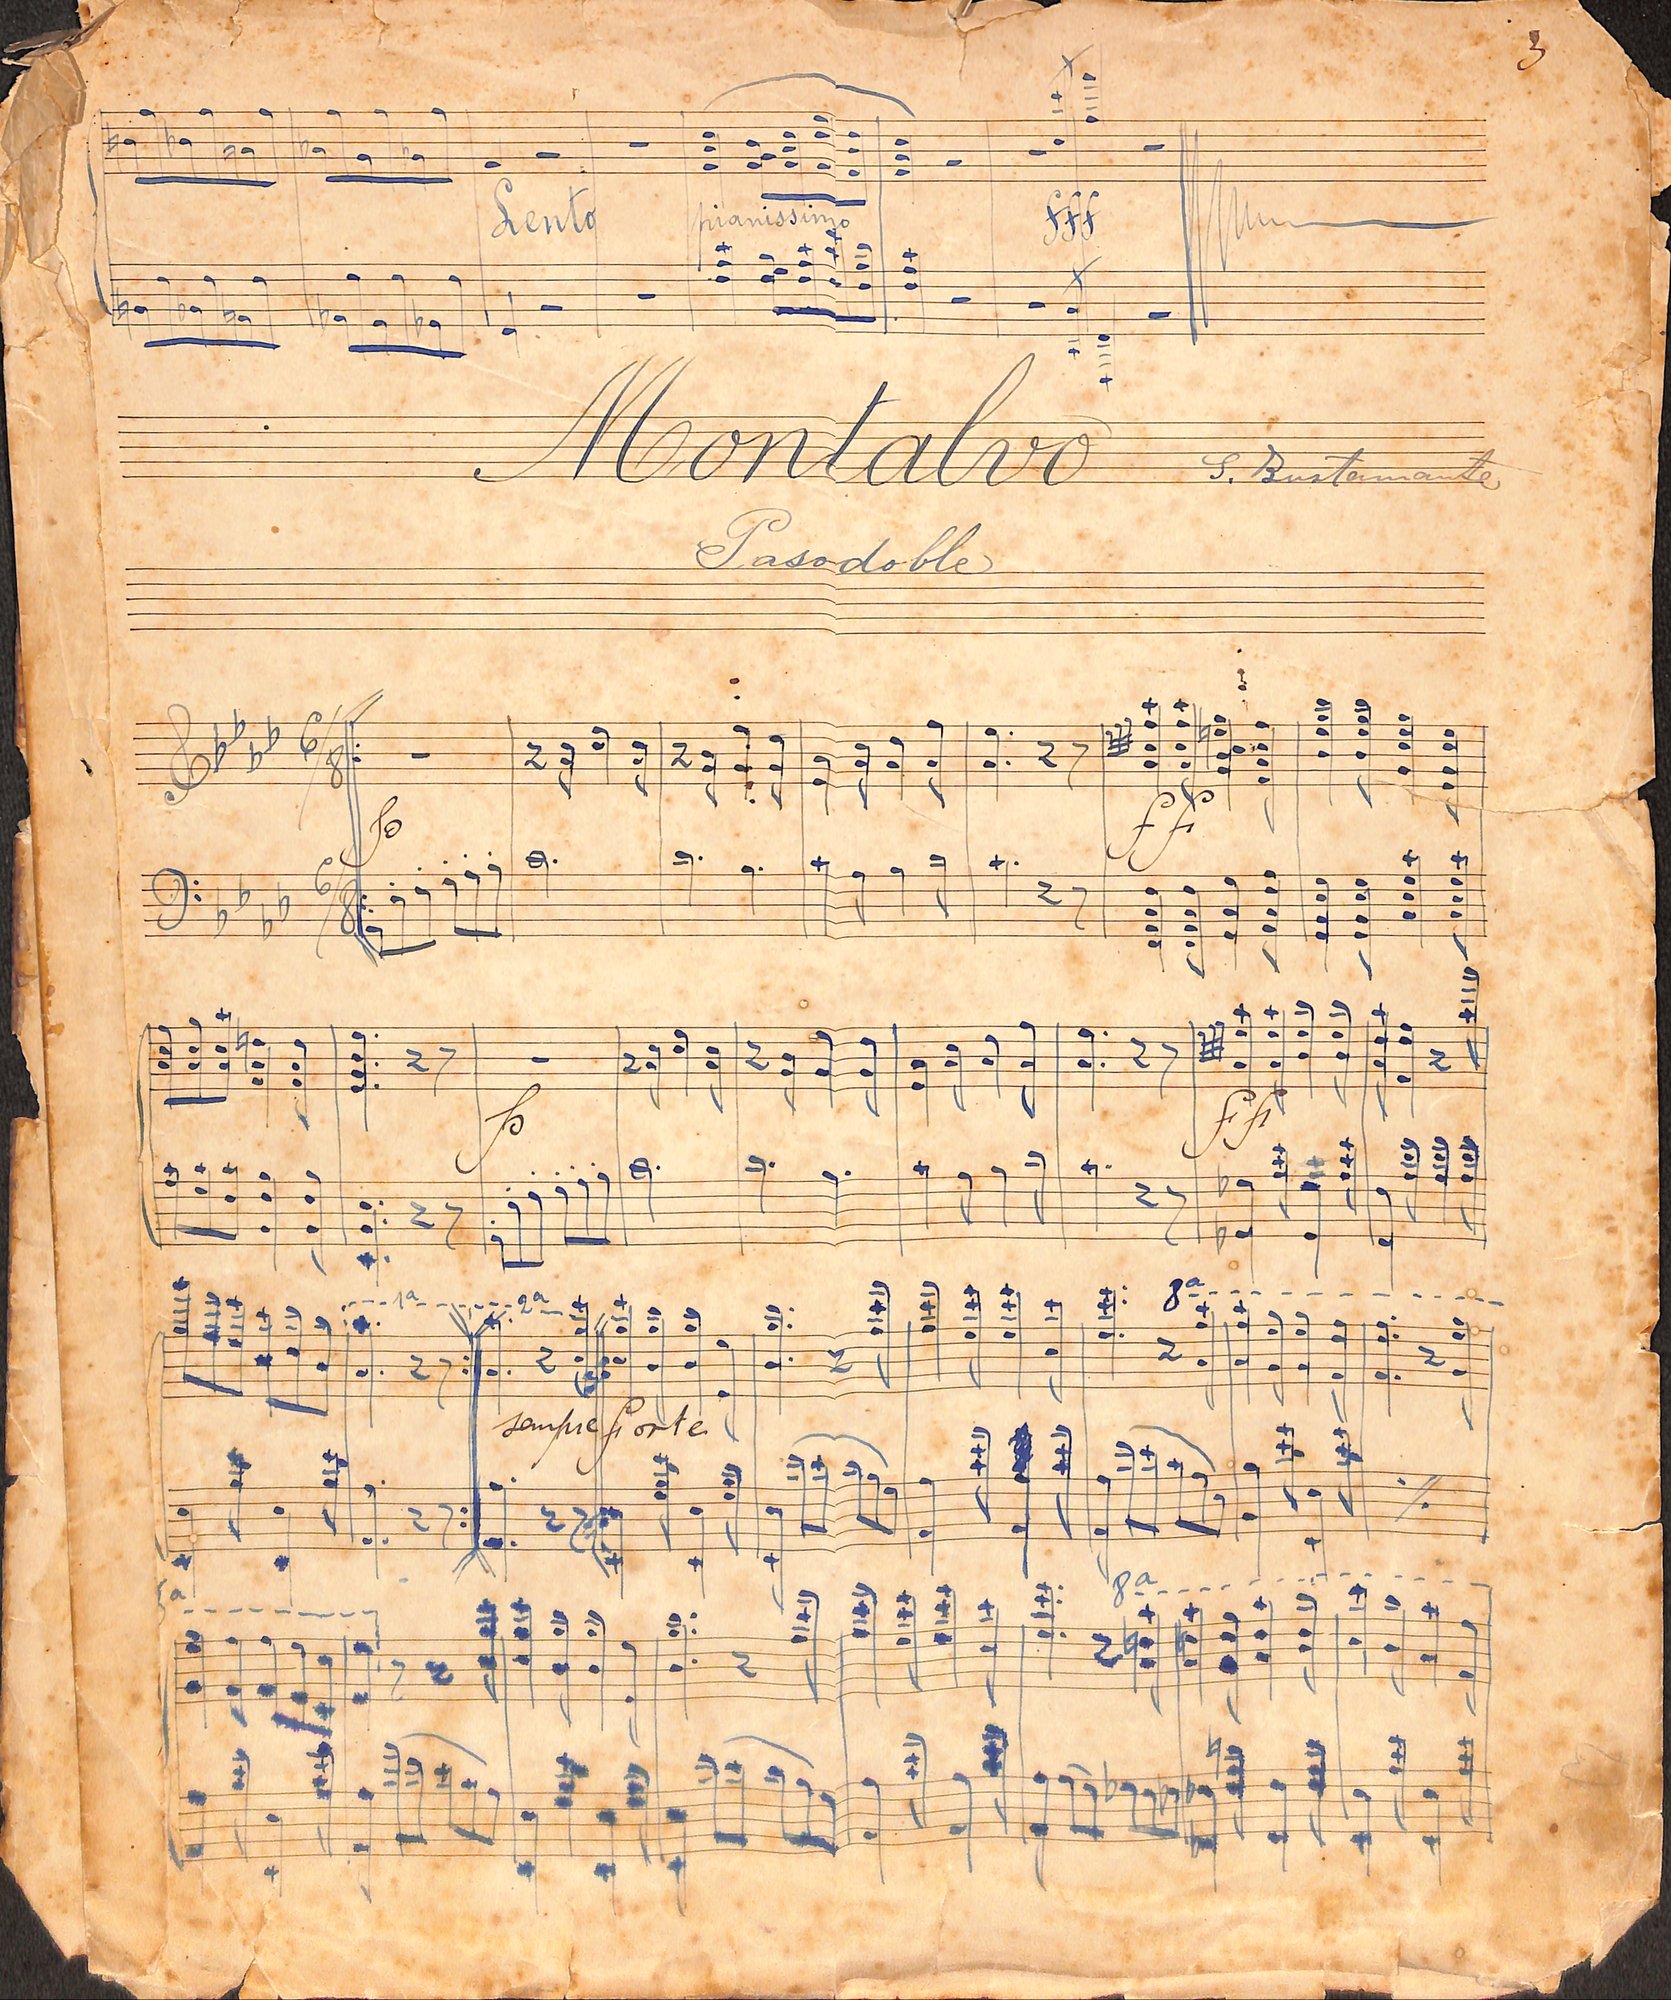 3
Lento pianissimo fff
Montalvo S. Bustamante
Pasodoble
6/8
p ff
6/8
p ff
1ª 2ª 8ª
sempre forte
8ª 8ª